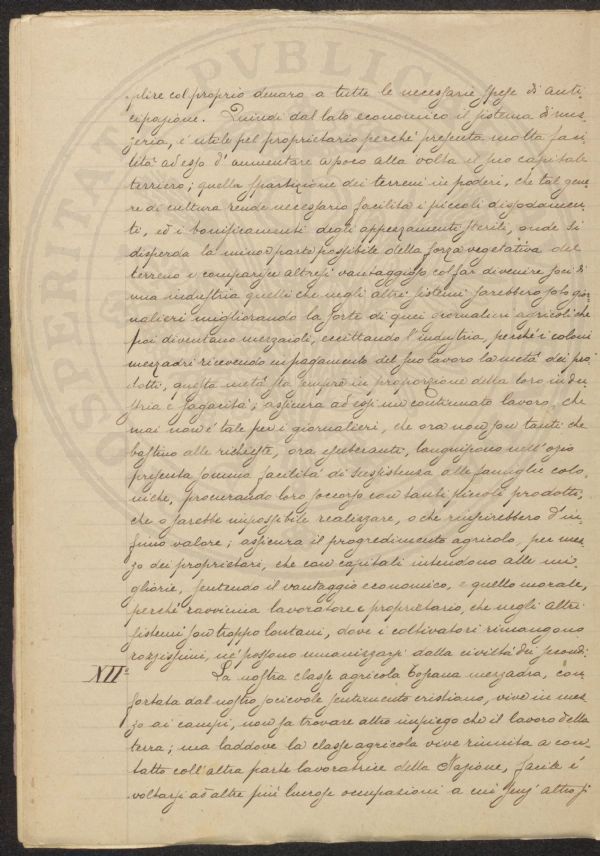 plire col proprio denaro a tutte le necessarie spese di anti-
cipazione. Quindi dal lato economico il sistema di mez-
zeria, é utile pel proprietario perché presenta molta faci-
lità ad esso d'aumentare a poco alla volta il suo capitale
terriero; quella spartizione dei terreni in poderi, che tal gene-
re di cultura rende necessario facilita i piccoli dissodamen-
ti, ed i bonificamenti degli appezzamenti sterili, onde si
disperda la minor parte possibile della forza vegetativa del
terreno e comparisce altresì vantaggioso col far divenire soci di
una industria quelli che negli altri sistemi sarebbero solo gior-
nalieri migliorando la sorte di quei giornalieri agricoli che
poi diventano mezzaioli, eccittando l'industria, perché i coloni
mezzadri ricevendo in pagamento del suo lavoro la metà dei pro-
dotti, questa metà sta sempre in proporzione della loro indu-
stria e sagacità; assicura ad essi un continuato lavoro, che
mai non é tale per i giornalieri, che ora non son tanti che
bastino alle richieste, ora esuberanti, languiscono nell'ozio
presenta somma facilità di sussistenza alle famiglie colo-
niche, procurando loro soccorso con tanti piccoli prodotti,
che o sarebbe impossibile realizzare, o che riuscirebbero d'in-
fimo valore; assicura il progredimento agricolo, per mez-
zo dei proprietari, che con capitali intendono alle mi-
gliorie, sentendo il vantaggio economico, e quello morale,
perché ravvicina lavoratore e proprietario, che negli altri
sistemi son troppo lontani, dove i coltivatori rimangono
rozzissimi, né possono umanizzarsi dalla civiltà dei secondi.
XII° La nostra classe agricola Toscana mezzadra, con-
fortata dal nostro socievole sentimento cristiano, vive in mez-
zo ai campi, non sa trovare altro impiego che il lavoro della
terra; ma laddove la classe agricola vive riunita a con-
tatto coll'altra parte lavoratrice della Nazione, facile é
voltarsi ad altre più lucrose occupazioni a cui senz'altro si
PROSPERITAT PUBLICA